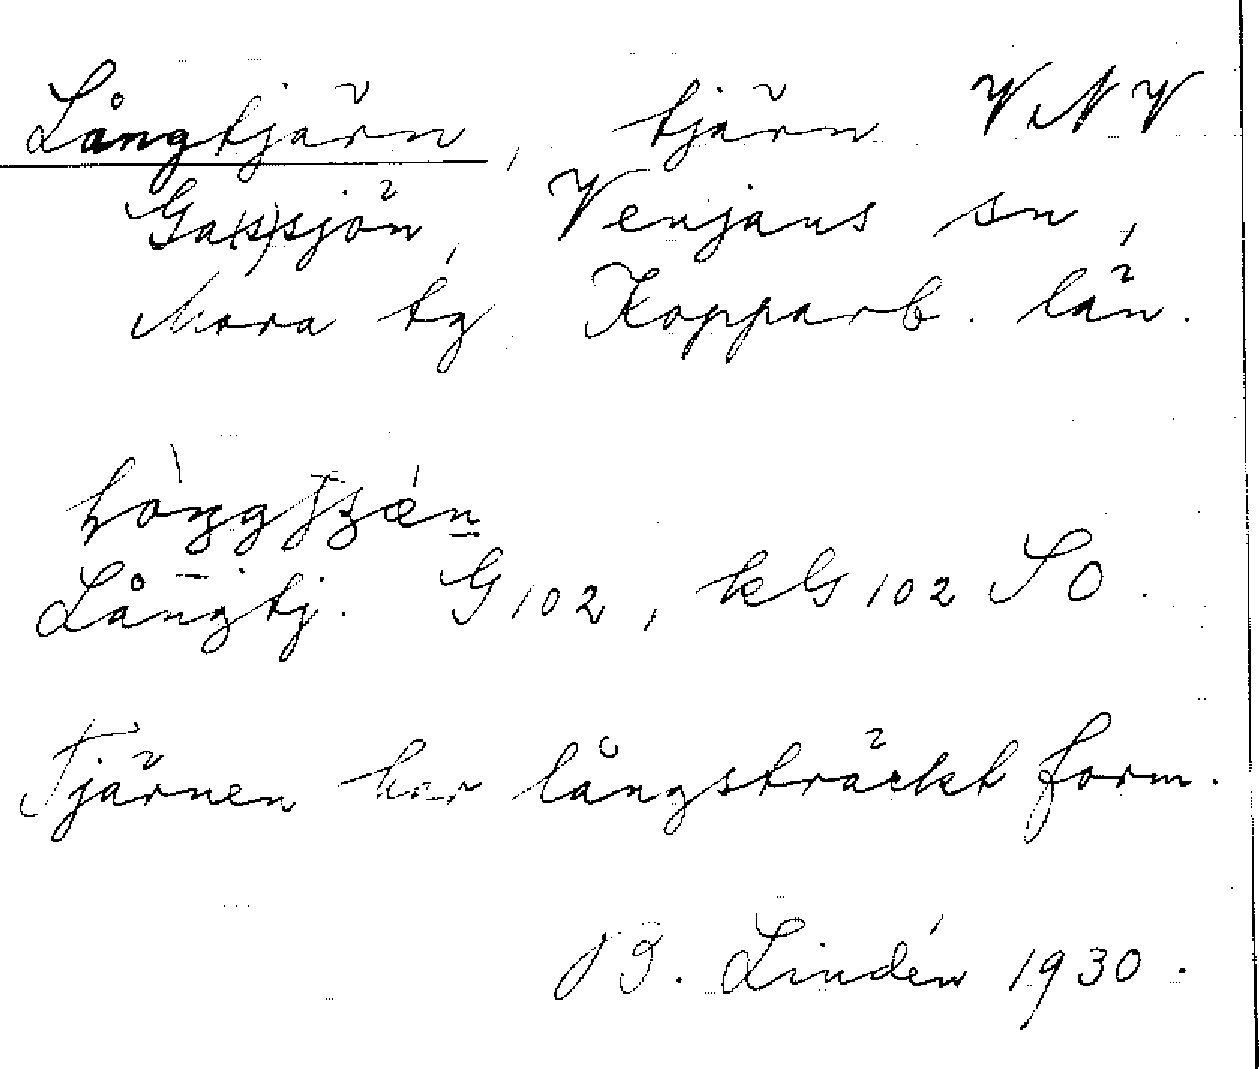 Långtjärn, tjärn VNV
Ga(s)sjön, Venjans sn,
Mora tg Kopparb. län.
Långtj. G 102, kG 102 SO.
Tjärnen har långsträckt form.
B. Lindén 1930.